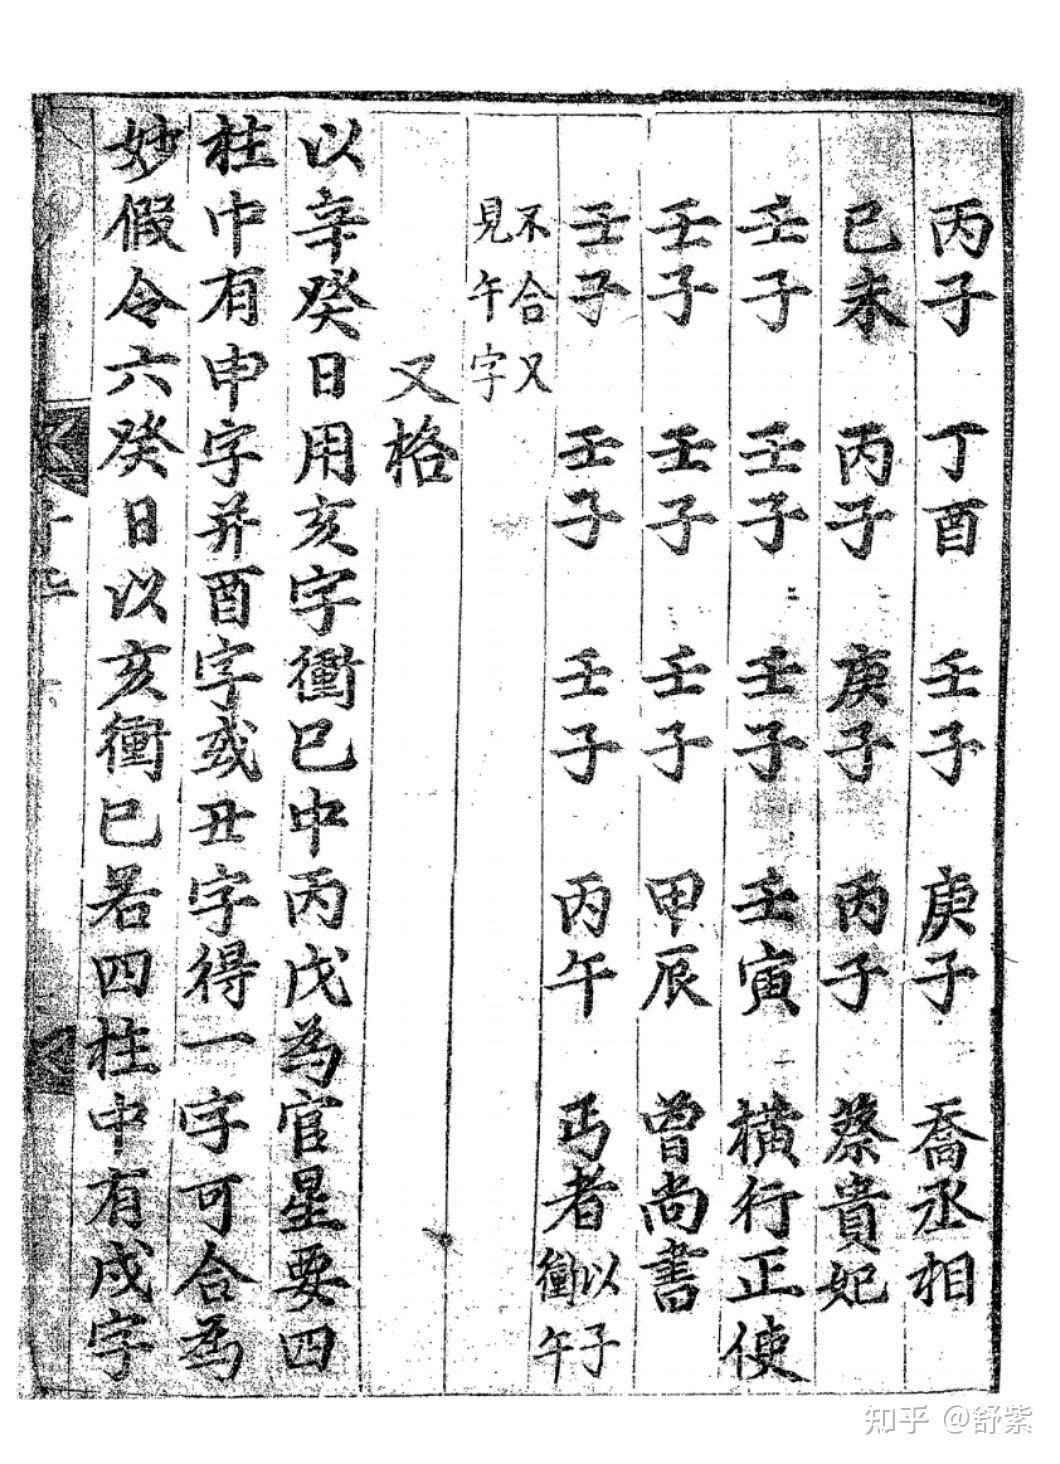 丙子　丁酉　壬子　庚子　喬丞相
己未　丙子　庚子　丙子　蔡貴妃
壬子　壬子　壬子　壬寅　橫行正使
壬子　壬子　壬子　甲辰　曾尚書
壬子　壬子　壬子　丙午　丐者以子衝午
不合又見午字
又格
以辛癸日用亥字衝巳中丙戊為官星要四
柱中有申字并酉字或丑字得一字可合為
妙假令六癸日以亥衝巳若四柱中有戌字
知乎 @舒紫